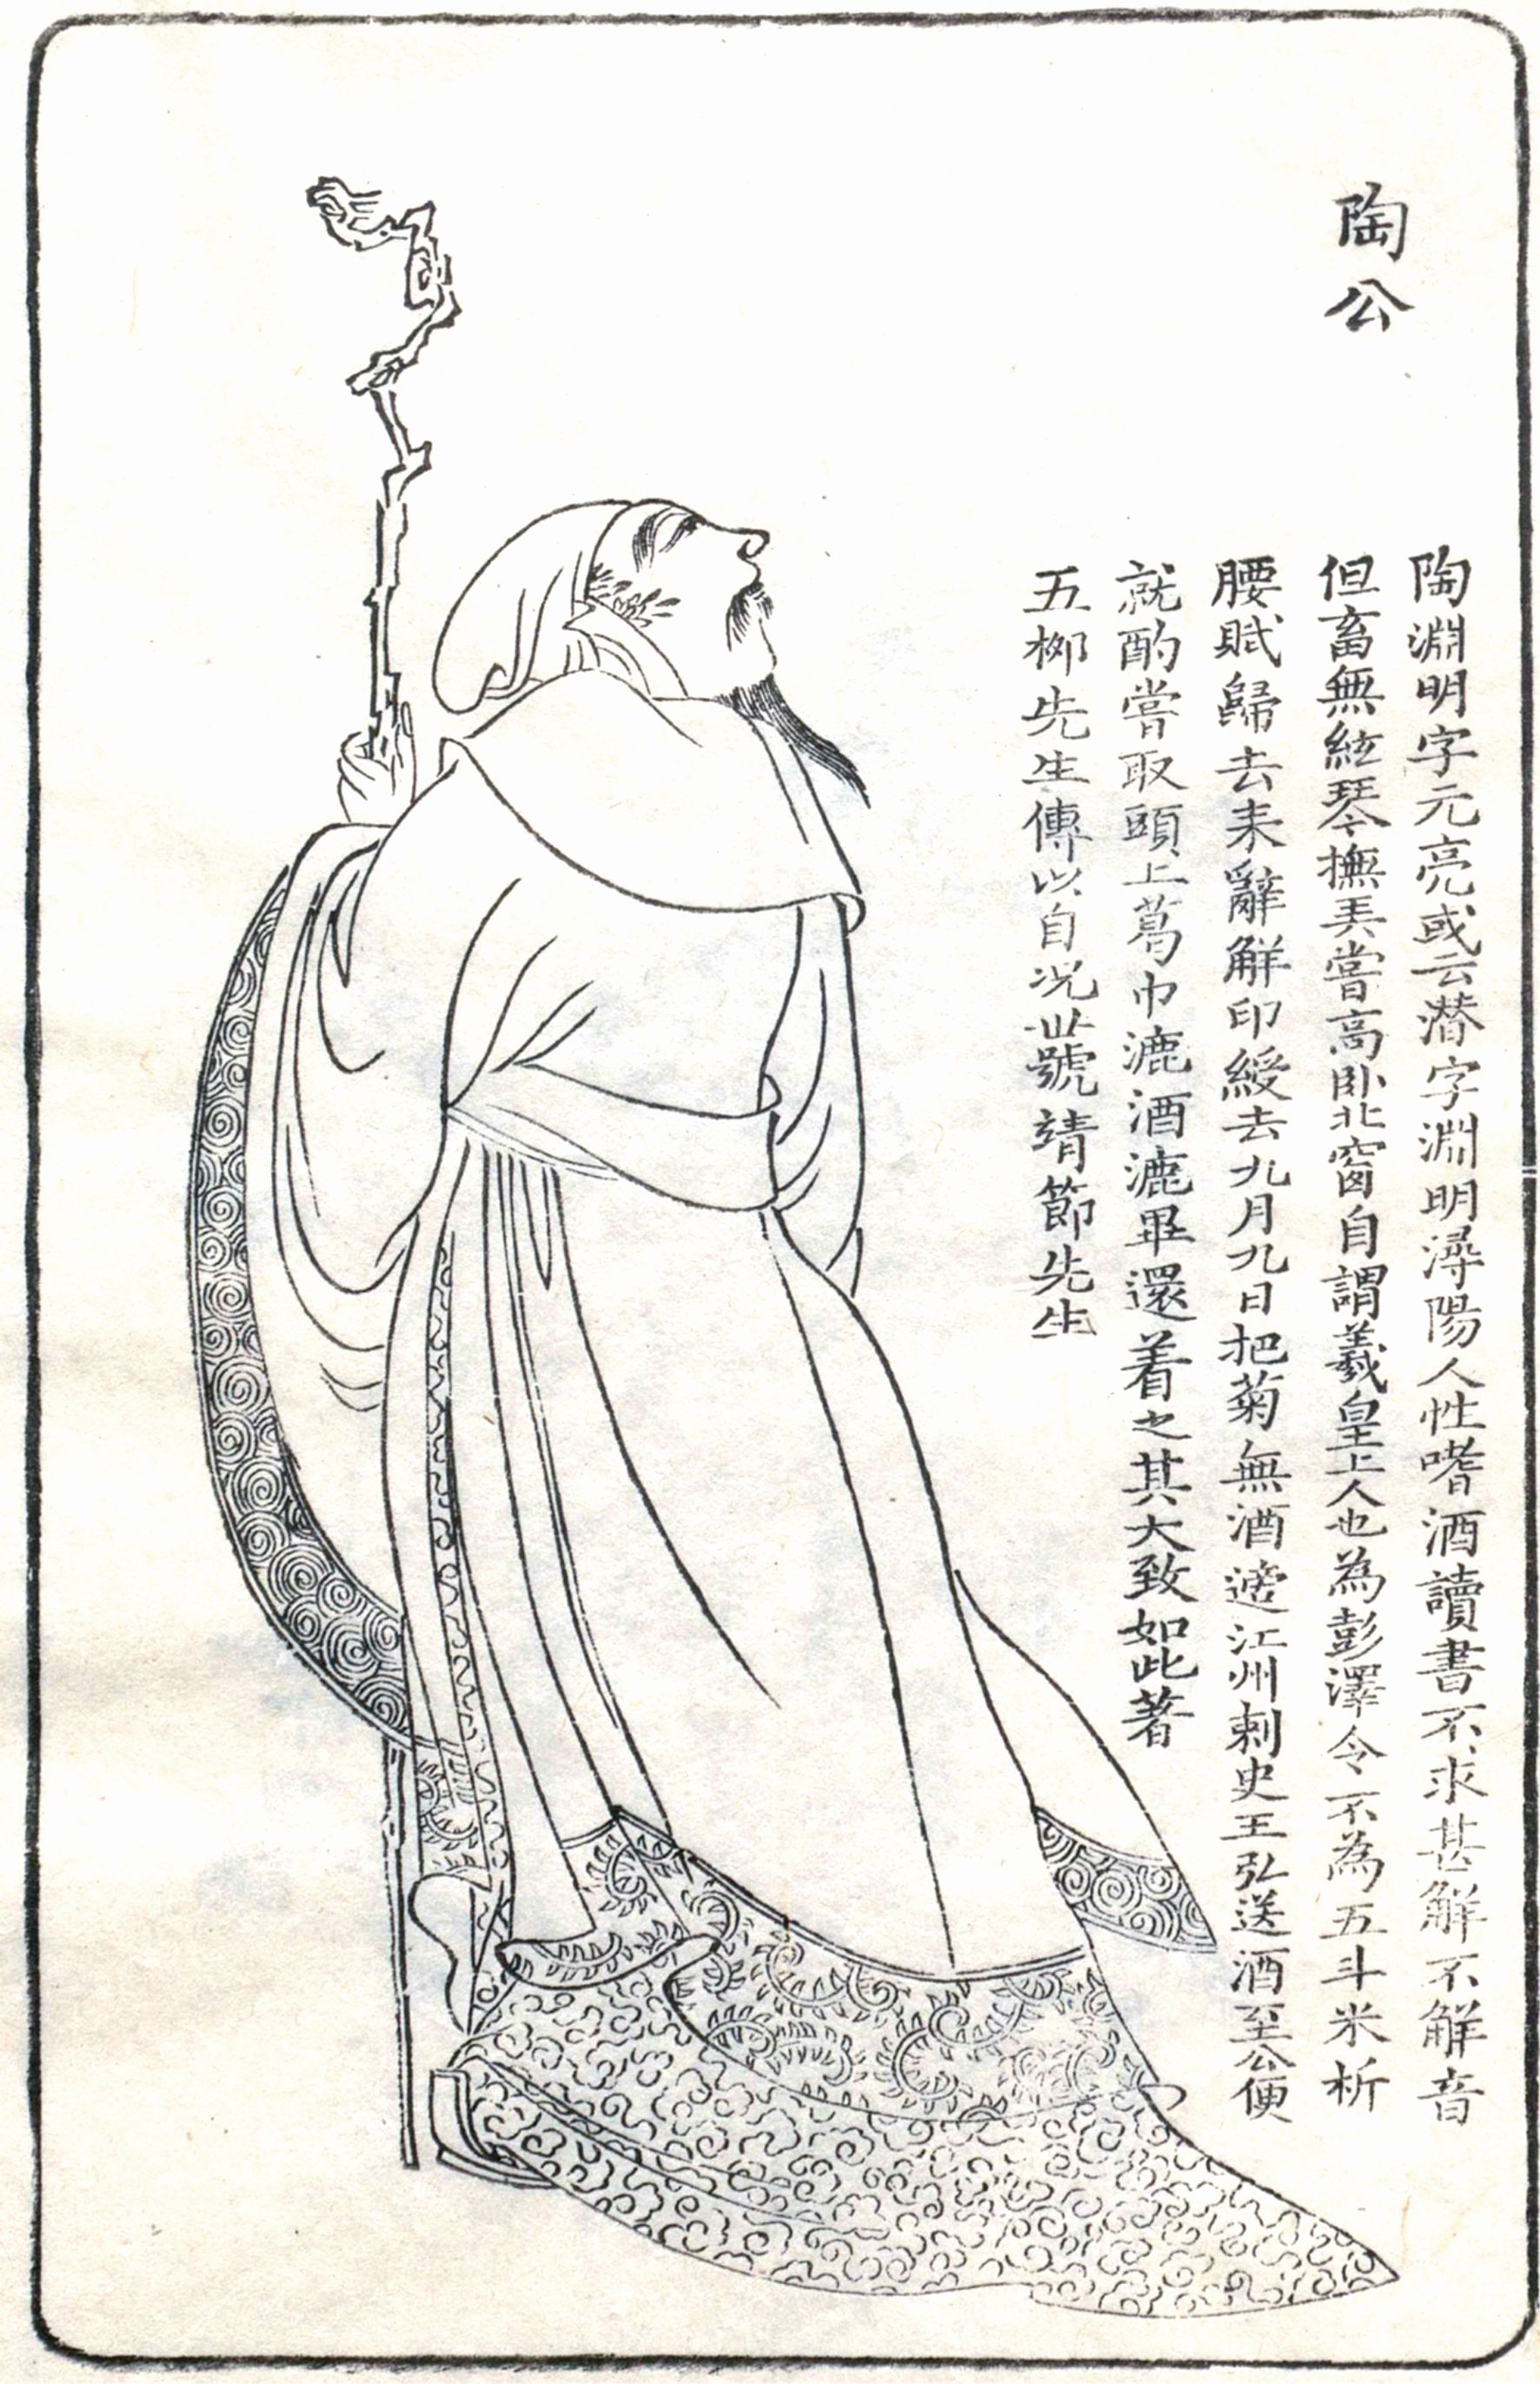 陶公
陶淵明字元亮或云潛字淵明潯陽人性嗜酒讀書不求甚解不解音
但畜無絃琴撫弄嘗高卧北窗自謂羲皇上人也為彭澤令不為五斗米折
腰賦歸去来辭解印綬去九月九日把菊無酒適江州刺史王弘送酒至公便
就酌嘗取頭上葛巾漉酒漉畢還着之其大致如此著
五柳先生傳以自况世號靖節先生